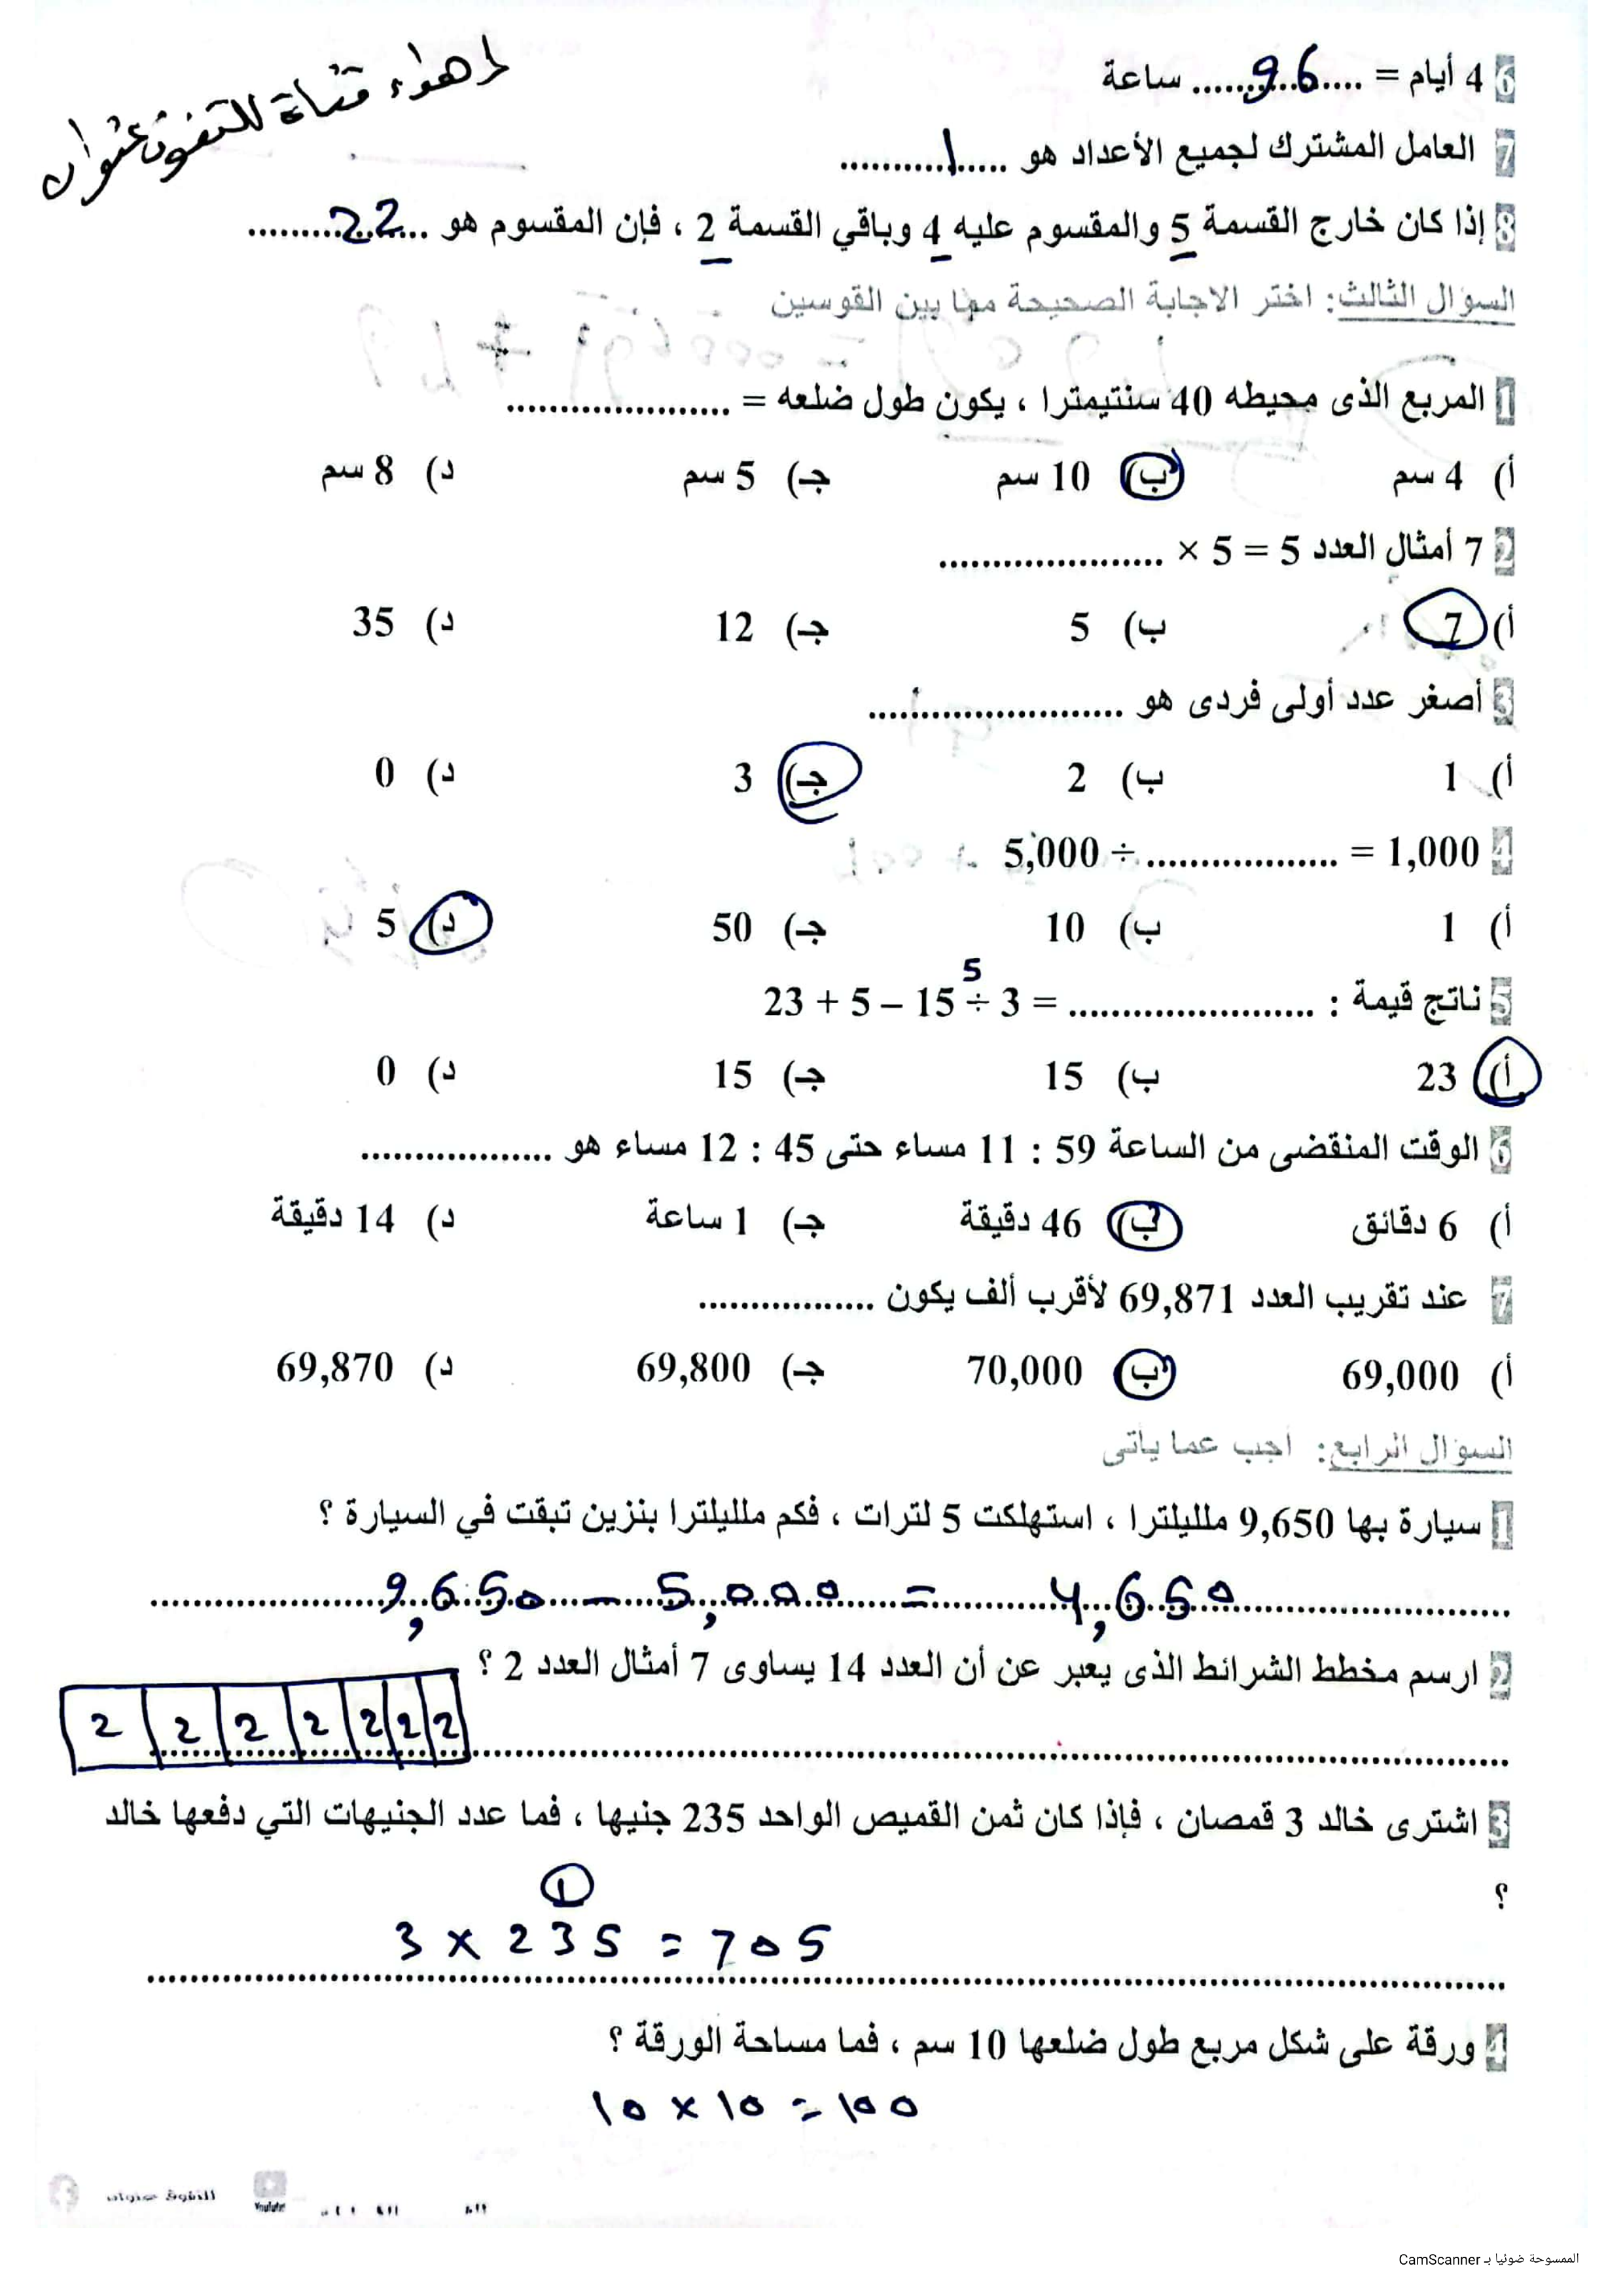 اهداء قناة للتفوق عنوان
6 4 أيام = ......96...... ساعة
7 العامل المشترك لجميع الأعداد هو ......1......
8 إذا كان خارج القسمة 5 والمقسوم عليه 4 وباقي القسمة 2 ، فإن المقسوم هو ......22......
السؤال الثالث: اختر الاجابة الصحيحة مما بين القوسين
1 المربع الذى محيطه 40 سنتيمترا ، يكون طول ضلعه = .....................
أ) 4 سم ب) 10 سم جـ) 5 سم د) 8 سم
2 7 أمثال العدد 5 = 5 × .....................
أ) 7 ب) 5 جـ) 12 د) 35
3 أصغر عدد أولى فردى هو ........................
أ) 1 ب) 2 جـ) 3 د) 0
4 5,000 ÷ .................. = 1,000
أ) 1 ب) 10 جـ) 50 د) 5
5
5 ناتج قيمة : ....................... = 23 + 5 – 15 ÷ 3
أ) 23 ب) 15 جـ) 15 د) 0
6 الوقت المنقضى من الساعة 59 : 11 مساء حتى 45 : 12 مساء هو ..................
أ) 6 دقائق ب) 46 دقيقة جـ) 1 ساعة د) 14 دقيقة
7 عند تقريب العدد 69,871 لأقرب ألف يكون .................
أ) 69,000 ب) 70,000 جـ) 69,800 د) 69,870
السؤال الرابع: اجب عما يأتى
1 سيارة بها 9,650 ملليلترا ، استهلكت 5 لترات ، فكم ملليلترا بنزين تبقت في السيارة ؟
9,650 – 5,000 = 4,650
2 ارسم مخطط الشرائط الذى يعبر عن أن العدد 14 يساوى 7 أمثال العدد 2 ؟
2 2 2 2 2 2 2
3 اشترى خالد 3 قمصان ، فإذا كان ثمن القميص الواحد 235 جنيها ، فما عدد الجنيهات التي دفعها خالد
؟
1
3 × 235 = 705
4 ورقة على شكل مربع طول ضلعها 10 سم ، فما مساحة الورقة ؟
10 × 10 = 100
للتفوق عنوان YouTube
الممسوحة ضوئيا بـ CamScanner